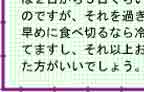 は２日から３日ぐらい
のですが、それを過ぎ
早めに食べ切るなら冷
てますし、それ以上お
た方がいいでしょう。